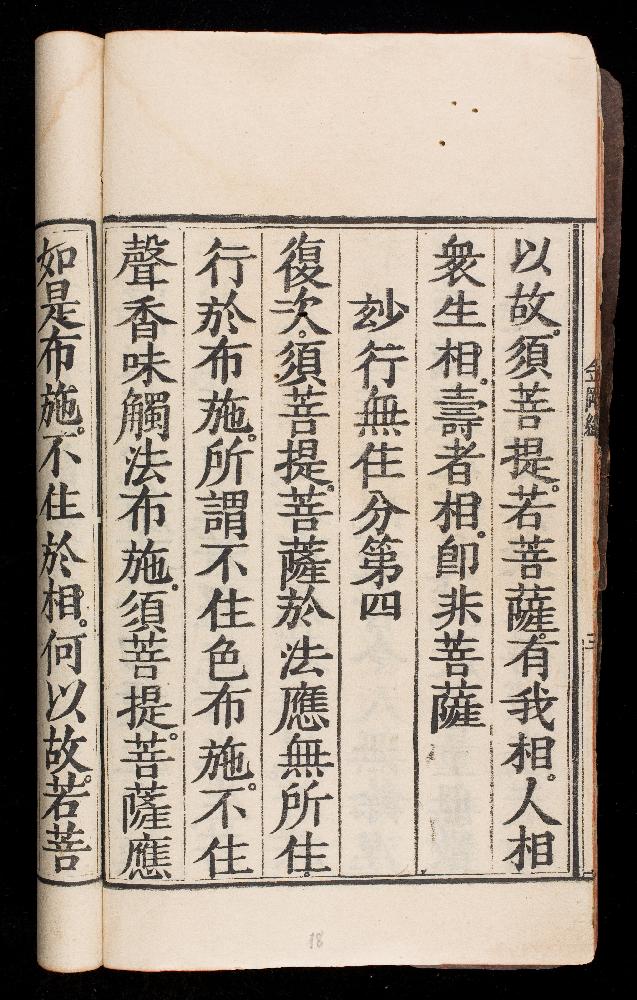 以故。須菩提。若菩薩。有我相。人相
衆生相。壽者相。卽非菩薩
玅行無住分第四
復次。須菩提。菩薩於法應無所住。
行於布施。所謂不住色布施。不住
聲香味觸法布施。須菩提。菩薩應
如是布施。不住於相。何以故。若菩
三
18